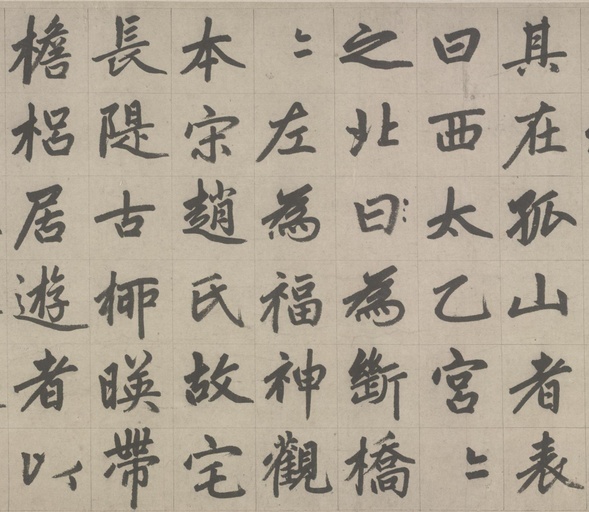 其在孤山者表
曰西太乙宮〻
之北曰為斷橋
〻左為福神觀
本宋趙氏故宅
長隄古桺暎帶
檐梠居遊者以